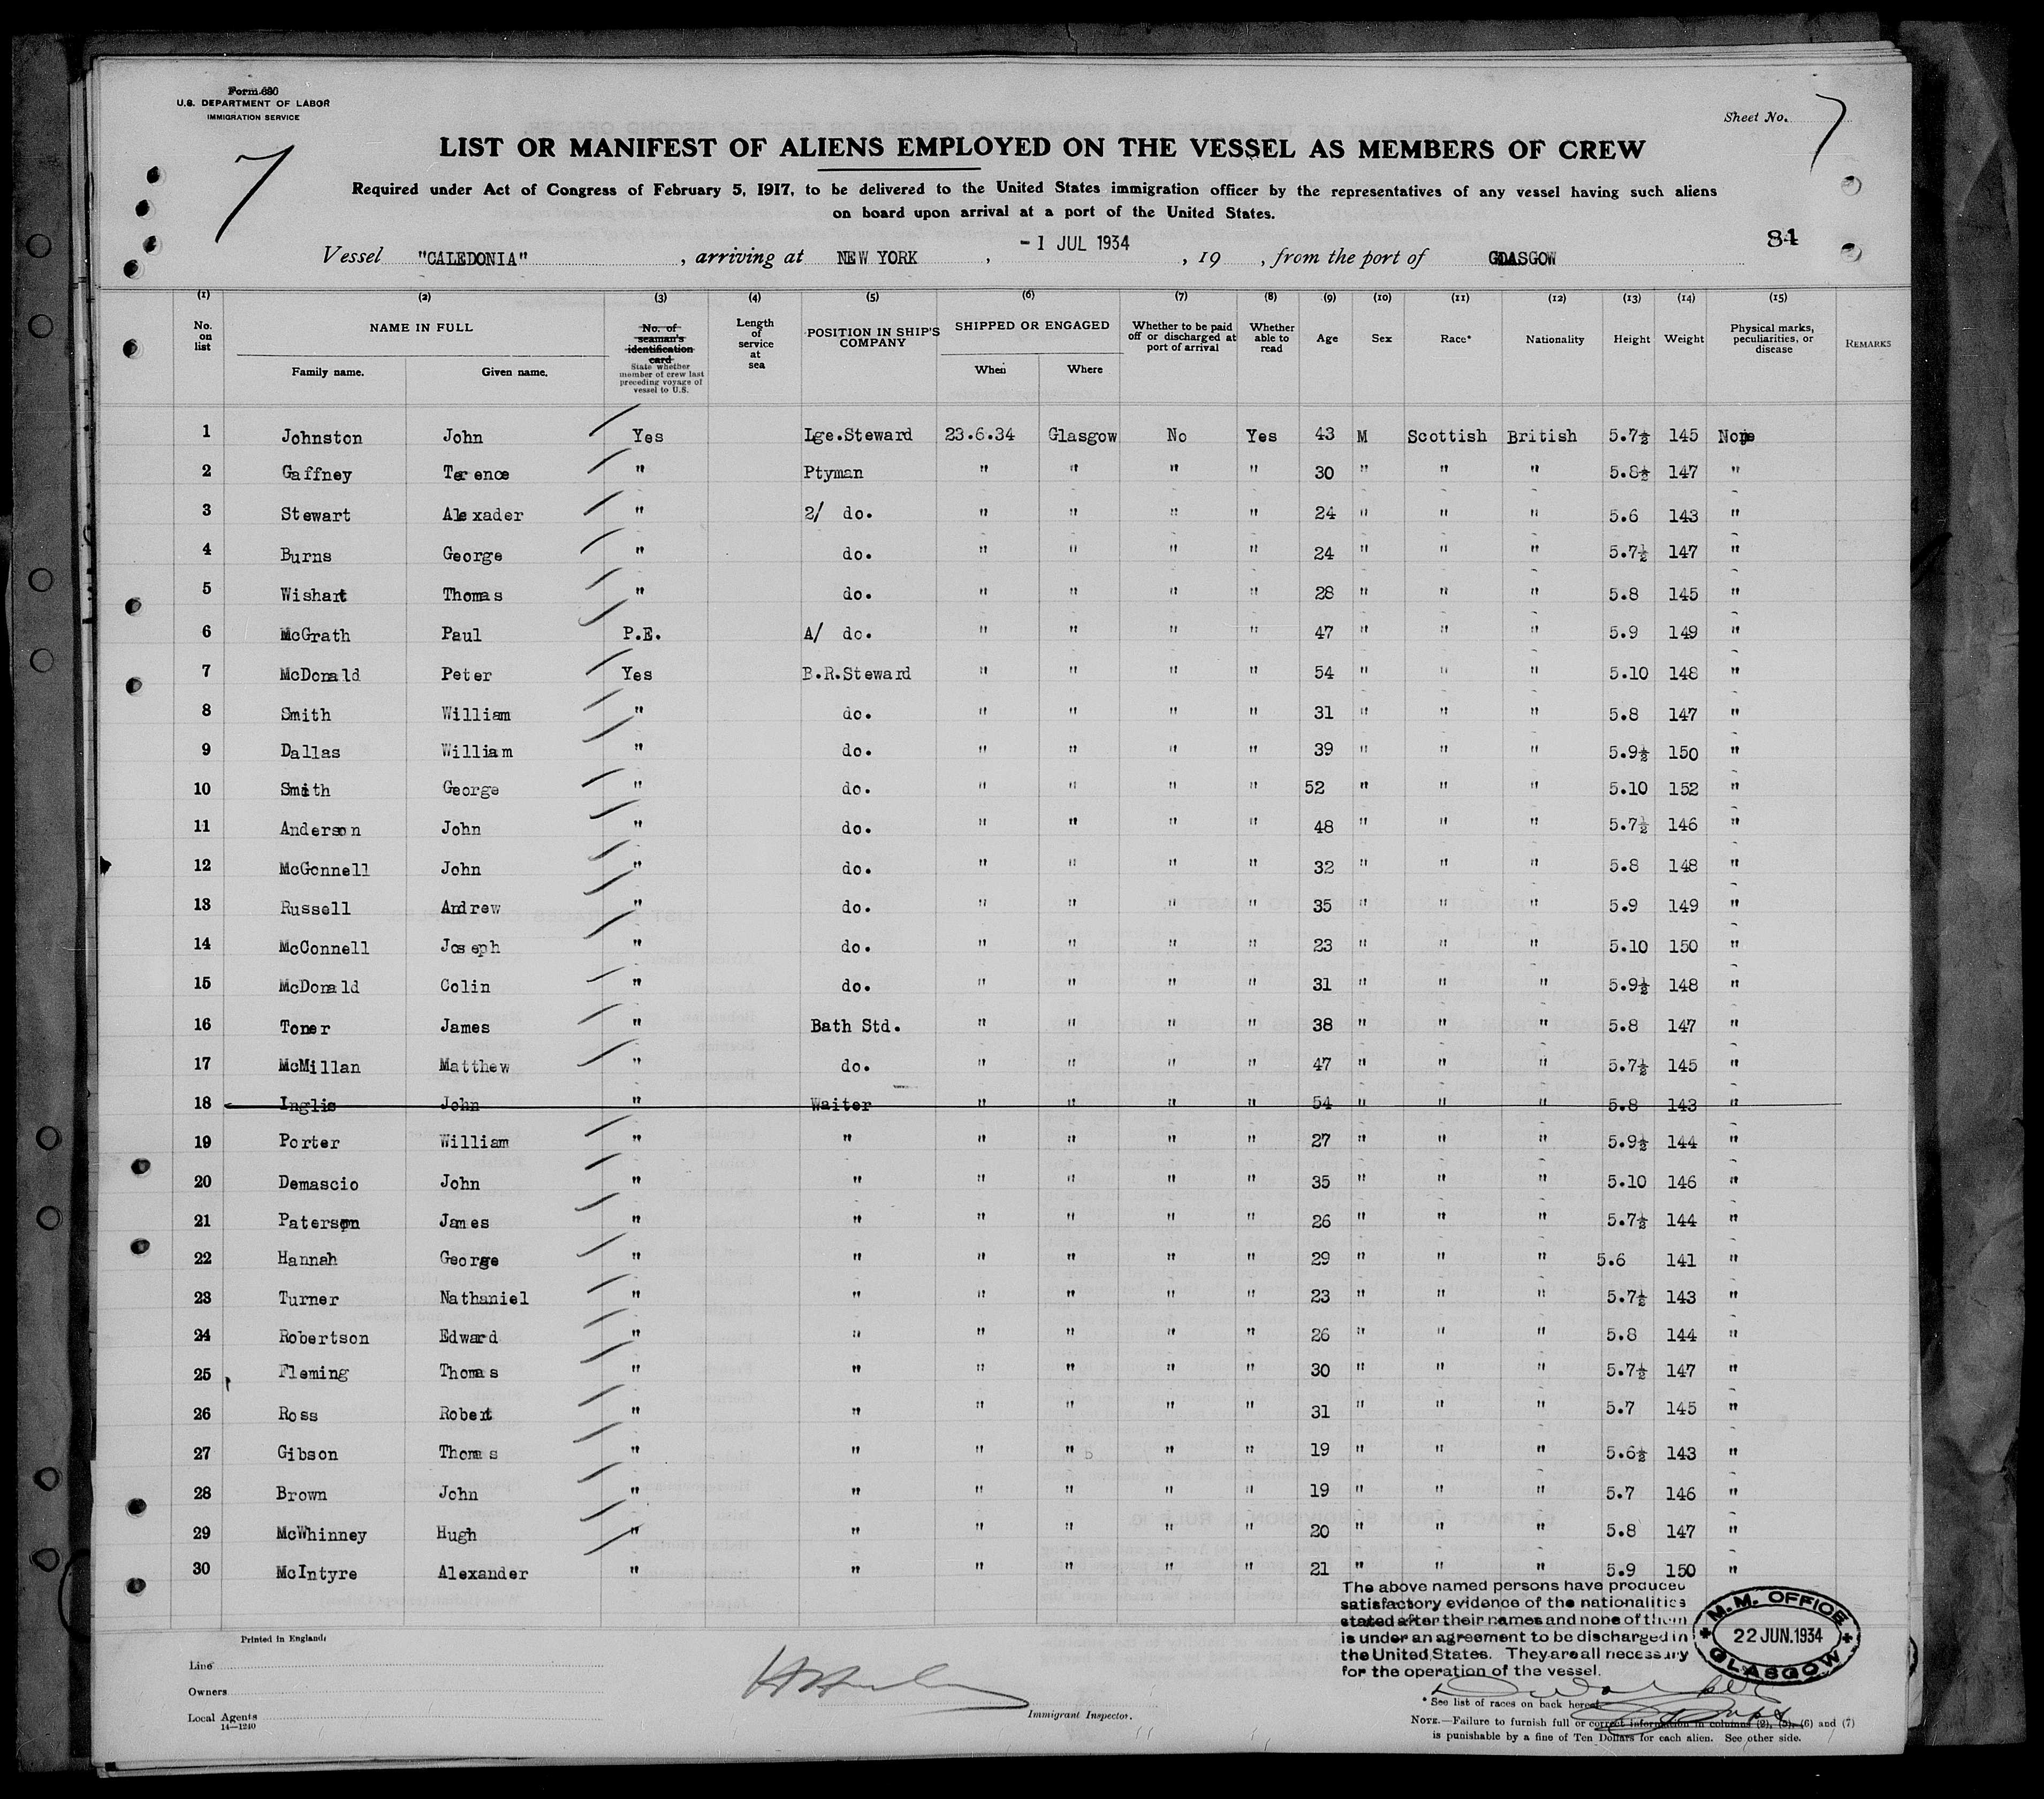 Form 680
U.S. DEPARTMENT OF LABOR
IMMIGRATION SERVICE
Sheet No. 7
7
LIST OR MANIFEST OF ALIENS EMPLOYED ON THE VESSEL AS MEMBERS OF CREW
Required under Act of Congress of February 5, 1917, to be delivered to the United States immigration officer by the representatives of any vessel having such aliens
on board upon arrival at a port of the United States.
84
Vessel "CALEDONIA", arriving at NEW YORK, -1 JUL 1934, 19 , from the port of GLASGOW
(1) (2) (3) (4) (5) (6) (7) (8) (9) (10) (11) (12) (13) (14) (15)
No. on list
NAME IN FULL
Family name. Given name.
No. of seaman's identification card
State whether member of crew last preceding voyage of vessel to U.S.
Length of service at sea
POSITION IN SHIP'S COMPANY
SHIPPED OR ENGAGED
When Where
Whether to be paid off or discharged at port of arrival
Whether able to read
Age
Sex
Race*
Nationality
Height
Weight
Physical marks, peculiarities, or disease
REMARKS
1 Johnston John Yes Lge.Steward 23.6.34 Glasgow No Yes 43 M Scottish British 5.7½ 145 None
2 Gaffney Terence " Ptyman " " " " 30 " " " 5.8½ 147 "
3 Stewart Alexader " 2/ do. " " " " 24 " " " 5.6 143 "
4 Burns George " do. " " " " 24 " " " 5.7½ 147 "
5 Wishart Thomas " do. " " " " 28 " " " 5.8 145 "
6 McGrath Paul P.E. A/ do. " " " " 47 " " " 5.9 149 "
7 McDonald Peter Yes B.R.Steward " " " " 54 " " " 5.10 148 "
8 Smith William " do. " " " " 31 " " " 5.8 147 "
9 Dallas William " do. " " " " 39 " " " 5.9½ 150 "
10 Smith George " do. " " " " 52 " " " 5.10 152 "
11 Anderson John " do. " " " " 48 " " " 5.7½ 146 "
12 McConnell John " do. " " " " 32 " " " 5.8 148 "
13 Russell Andrew " do. " " " " 35 " " " 5.9 149 "
14 McConnell Joseph " do. " " " " 23 " " " 5.10 150 "
15 McDonald Colin " do. " " " " 31 " " " 5.9½ 148 "
16 Toner James " Bath Std. " " " " 38 " " " 5.8 147 "
17 McMillan Matthew " do. " " " " 47 " " " 5.7½ 145 "
18 Inglis John " Waiter " " " " 54 " " " 5.8 143 "
19 Porter William " " " " " " 27 " " " 5.9½ 144 "
20 Demascio John " " " " " " 35 " " " 5.10 146 "
21 Paterson James " " " " " " 26 " " " 5.7½ 144 "
22 Hannah George " " " " " " 29 " " " 5.6 141 "
23 Turner Nathaniel " " " " " " 23 " " " 5.7½ 143 "
24 Robertson Edward " " " " " " 26 " " " 5.8 144 "
25 Fleming Thomas " " " " " " 30 " " " 5.7½ 147 "
26 Ross Robert " " " " " " 31 " " " 5.7 145 "
27 Gibson Thomas " " " " " " 19 " " " 5.6½ 143 "
28 Brown John " " " " " " 19 " " " 5.7 146 "
29 McWhinney Hugh " " " " " " 20 " " " 5.8 147 "
30 McIntyre Alexander " " " " " " 21 " " " 5.9 150 "
The above named persons have produced
satisfactory evidence of the nationalities
stated after their names and none of them
is under an agreement to be discharged in
the United States. They are all necessary
for the operation of the vessel.
M.M. OFFICE
22 JUN. 1934
GLASGOW
Printed in England
Line
Owners
Local Agents
14—1240
Immigrant Inspector.
* See list of races on back hereof.
NOTE.—Failure to furnish full or correct information in columns (2), (5), (6) and (7)
is punishable by a fine of Ten Dollars for each alien. See other side.